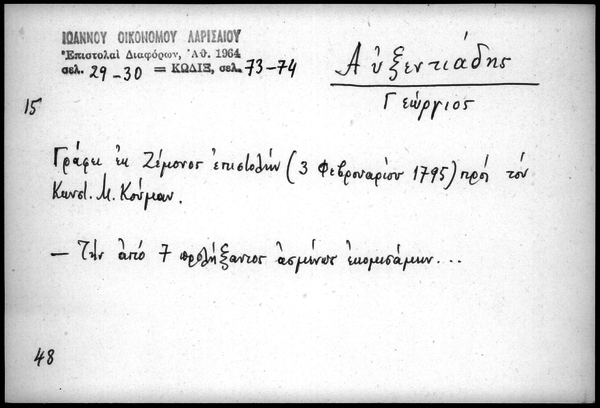 ΙΩΑΝΝΟΥ ΟΙΚΟΝΟΜΟΥ ΛΑΡΙΣΑΙΟΥ
Ἐπιστολαὶ Διαφόρων, Ἀθ. 1964
σελ. 29-30 = ΚΩΔΙΞ, σελ. 73-74
Αὐξεντιάδης
Γεώργιος
15
Γράφει ἐκ Ζέμονος ἐπιστολὴν (3 Φεβρουαρίου 1795) πρὸς τὸν
Κωνστ. Μ. Κούμαν.
— Τὴν ἀπό 7 προλήξαντος ἀσμένως ἐκομισάμην...
48